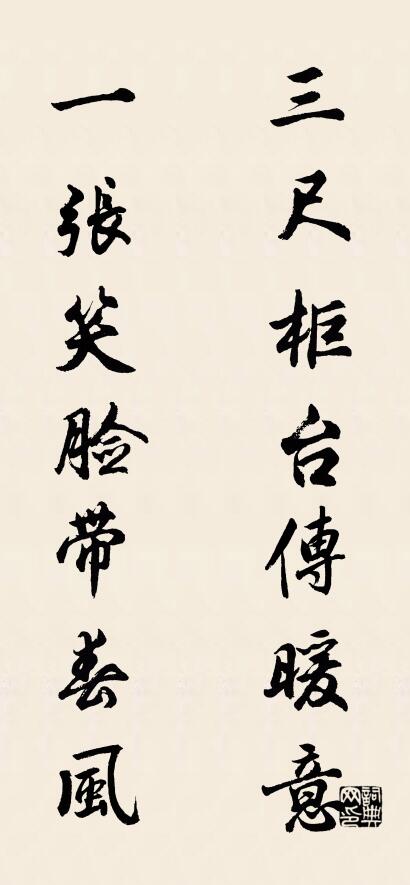 三尺柜台傳暖意
一張笑脸帶春風
詞典网印